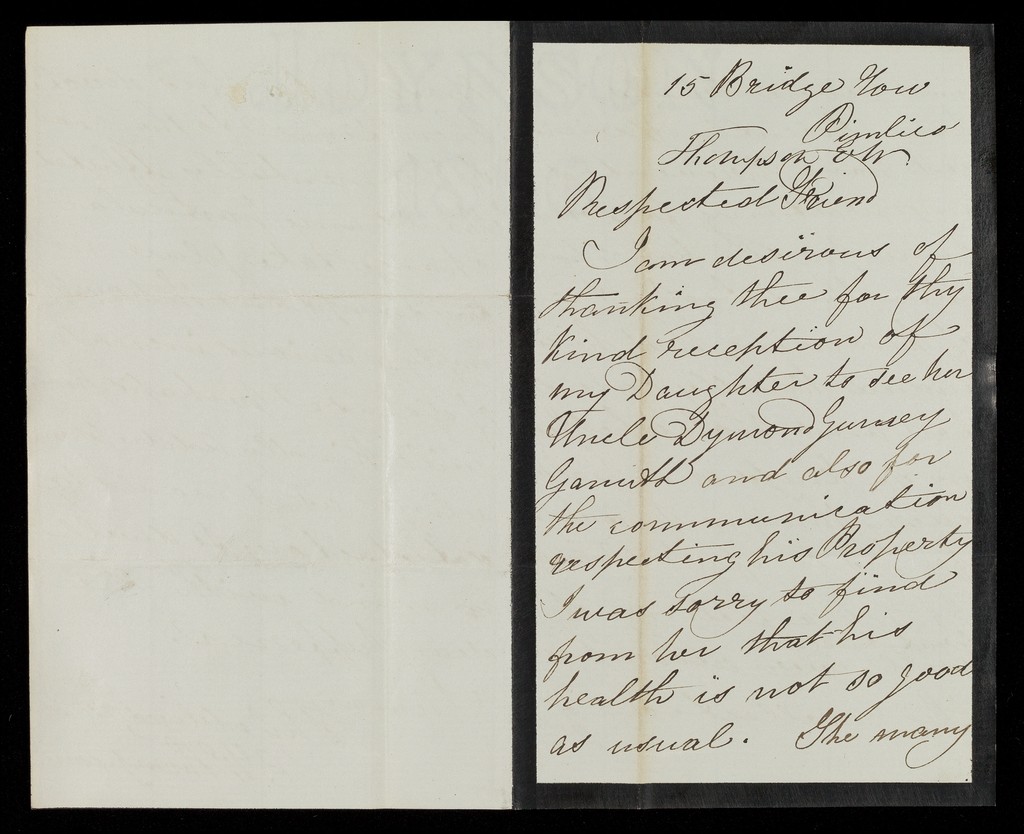 15 Bridge Row
Pimlico
Thompson
Respected Friend
I am desirous of
thanking thee for thy
kind reception of
my Daughter to see her
Uncle Dymond Gurney
and also for
the communication
respecting his Property
I was sorry to find
from her that his
health is not so good
as usual. The many